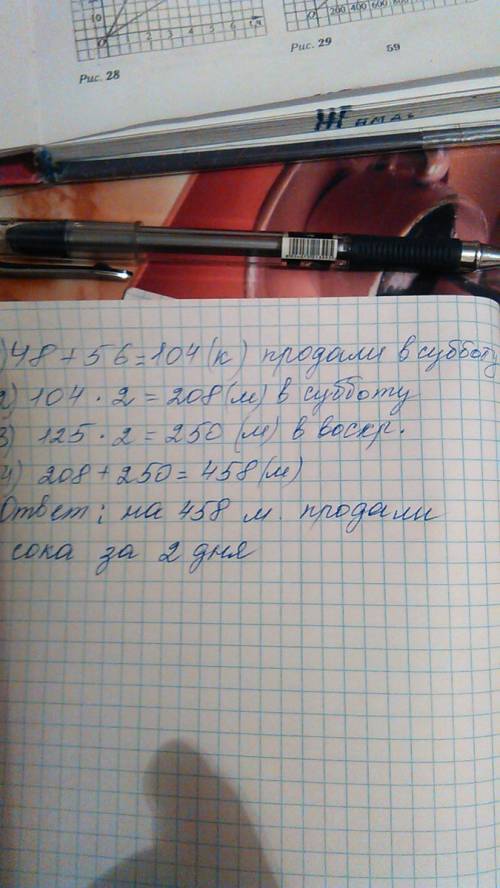 10
0
1 2 3 4 5 6
0 200 400 600 800
Рис. 28
Рис. 29
59
)48+56=104(к) продали в субботу
2) 104 · 2 = 208(м) в субботу
3) 125 · 2 = 250 (м) в воскр.
4) 208 + 250 = 458(м)
Ответ: на 458 м. продали
сока за 2 дня